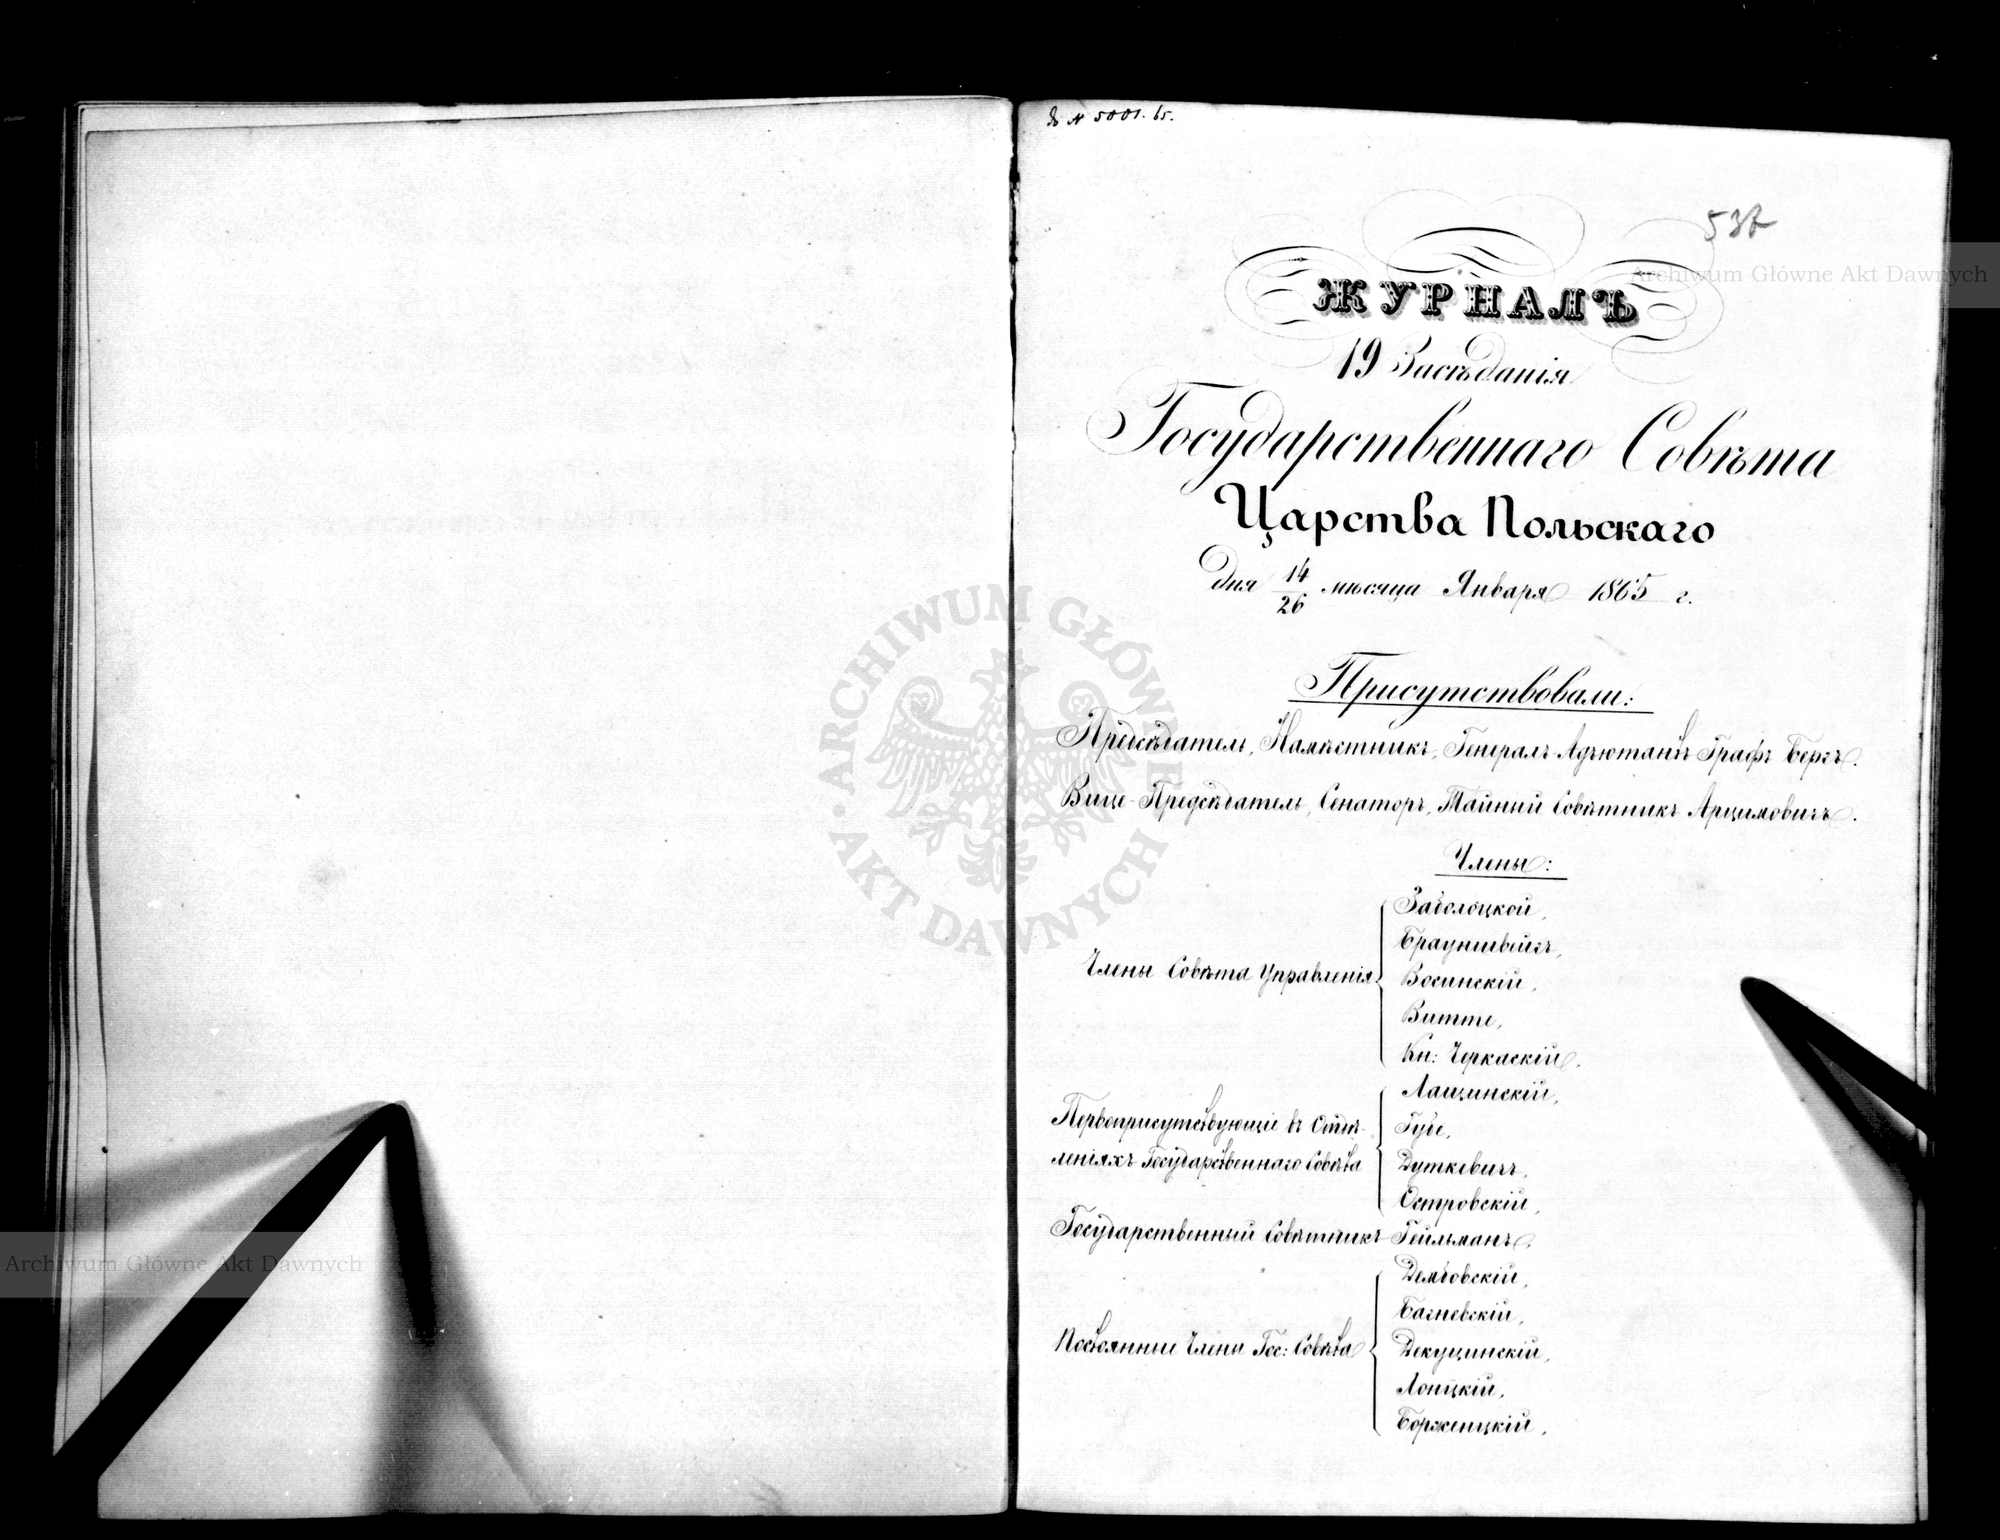 N 5001. 65.
537
ЖУРНАЛЪ
19 Засѣданія
Государственнаго Совѣта
Царства Польскаго
дня 14/26 мѣсяца Января 1865 г.
Присутствовали:
Предсѣдатель, Намѣстникъ, Генералъ-Адъютантъ Графъ Бергъ.
Вице-Предсѣдатель, Сенаторъ, Тайный Совѣтникъ Арцимовичъ.
Члены:
Члены Совѣта Управленія
Заболоцкой,
Брауншвейгъ,
Восинскій,
Витте,
Кн: Черкаскій.
Первоприсутствующіе въ Отдѣ-
леніяхъ Государственнаго Совѣта
Лащинскій,
Губе,
Дуткевичъ,
Островскій,
Государственный Совѣтникъ Гейльманъ.
Постоянные Члены Гос: Совѣта
Дембовскій,
Багневскій,
Декуцинскій,
Лопцкій,
Борженцкій,
Archiwum Główne Akt Dawnych
ARCHIWUM GŁÓWNE AKT DAWNYCH
Archiwum Główne Akt Dawnych